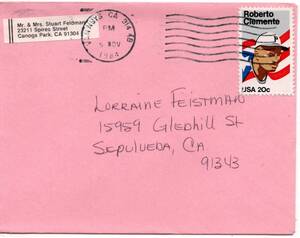 Mr. & Mrs. Stuart Feldman
23211 Spires Street
Canoga Park, CA 91304
VAN NUYS CA 914 46
PM
5 NOV
1984
Roberto
Clemente
USA 20c
LORRAINE FEISTMAN
15959 GLEDHILL St
SEPULVEDA, CA
91343